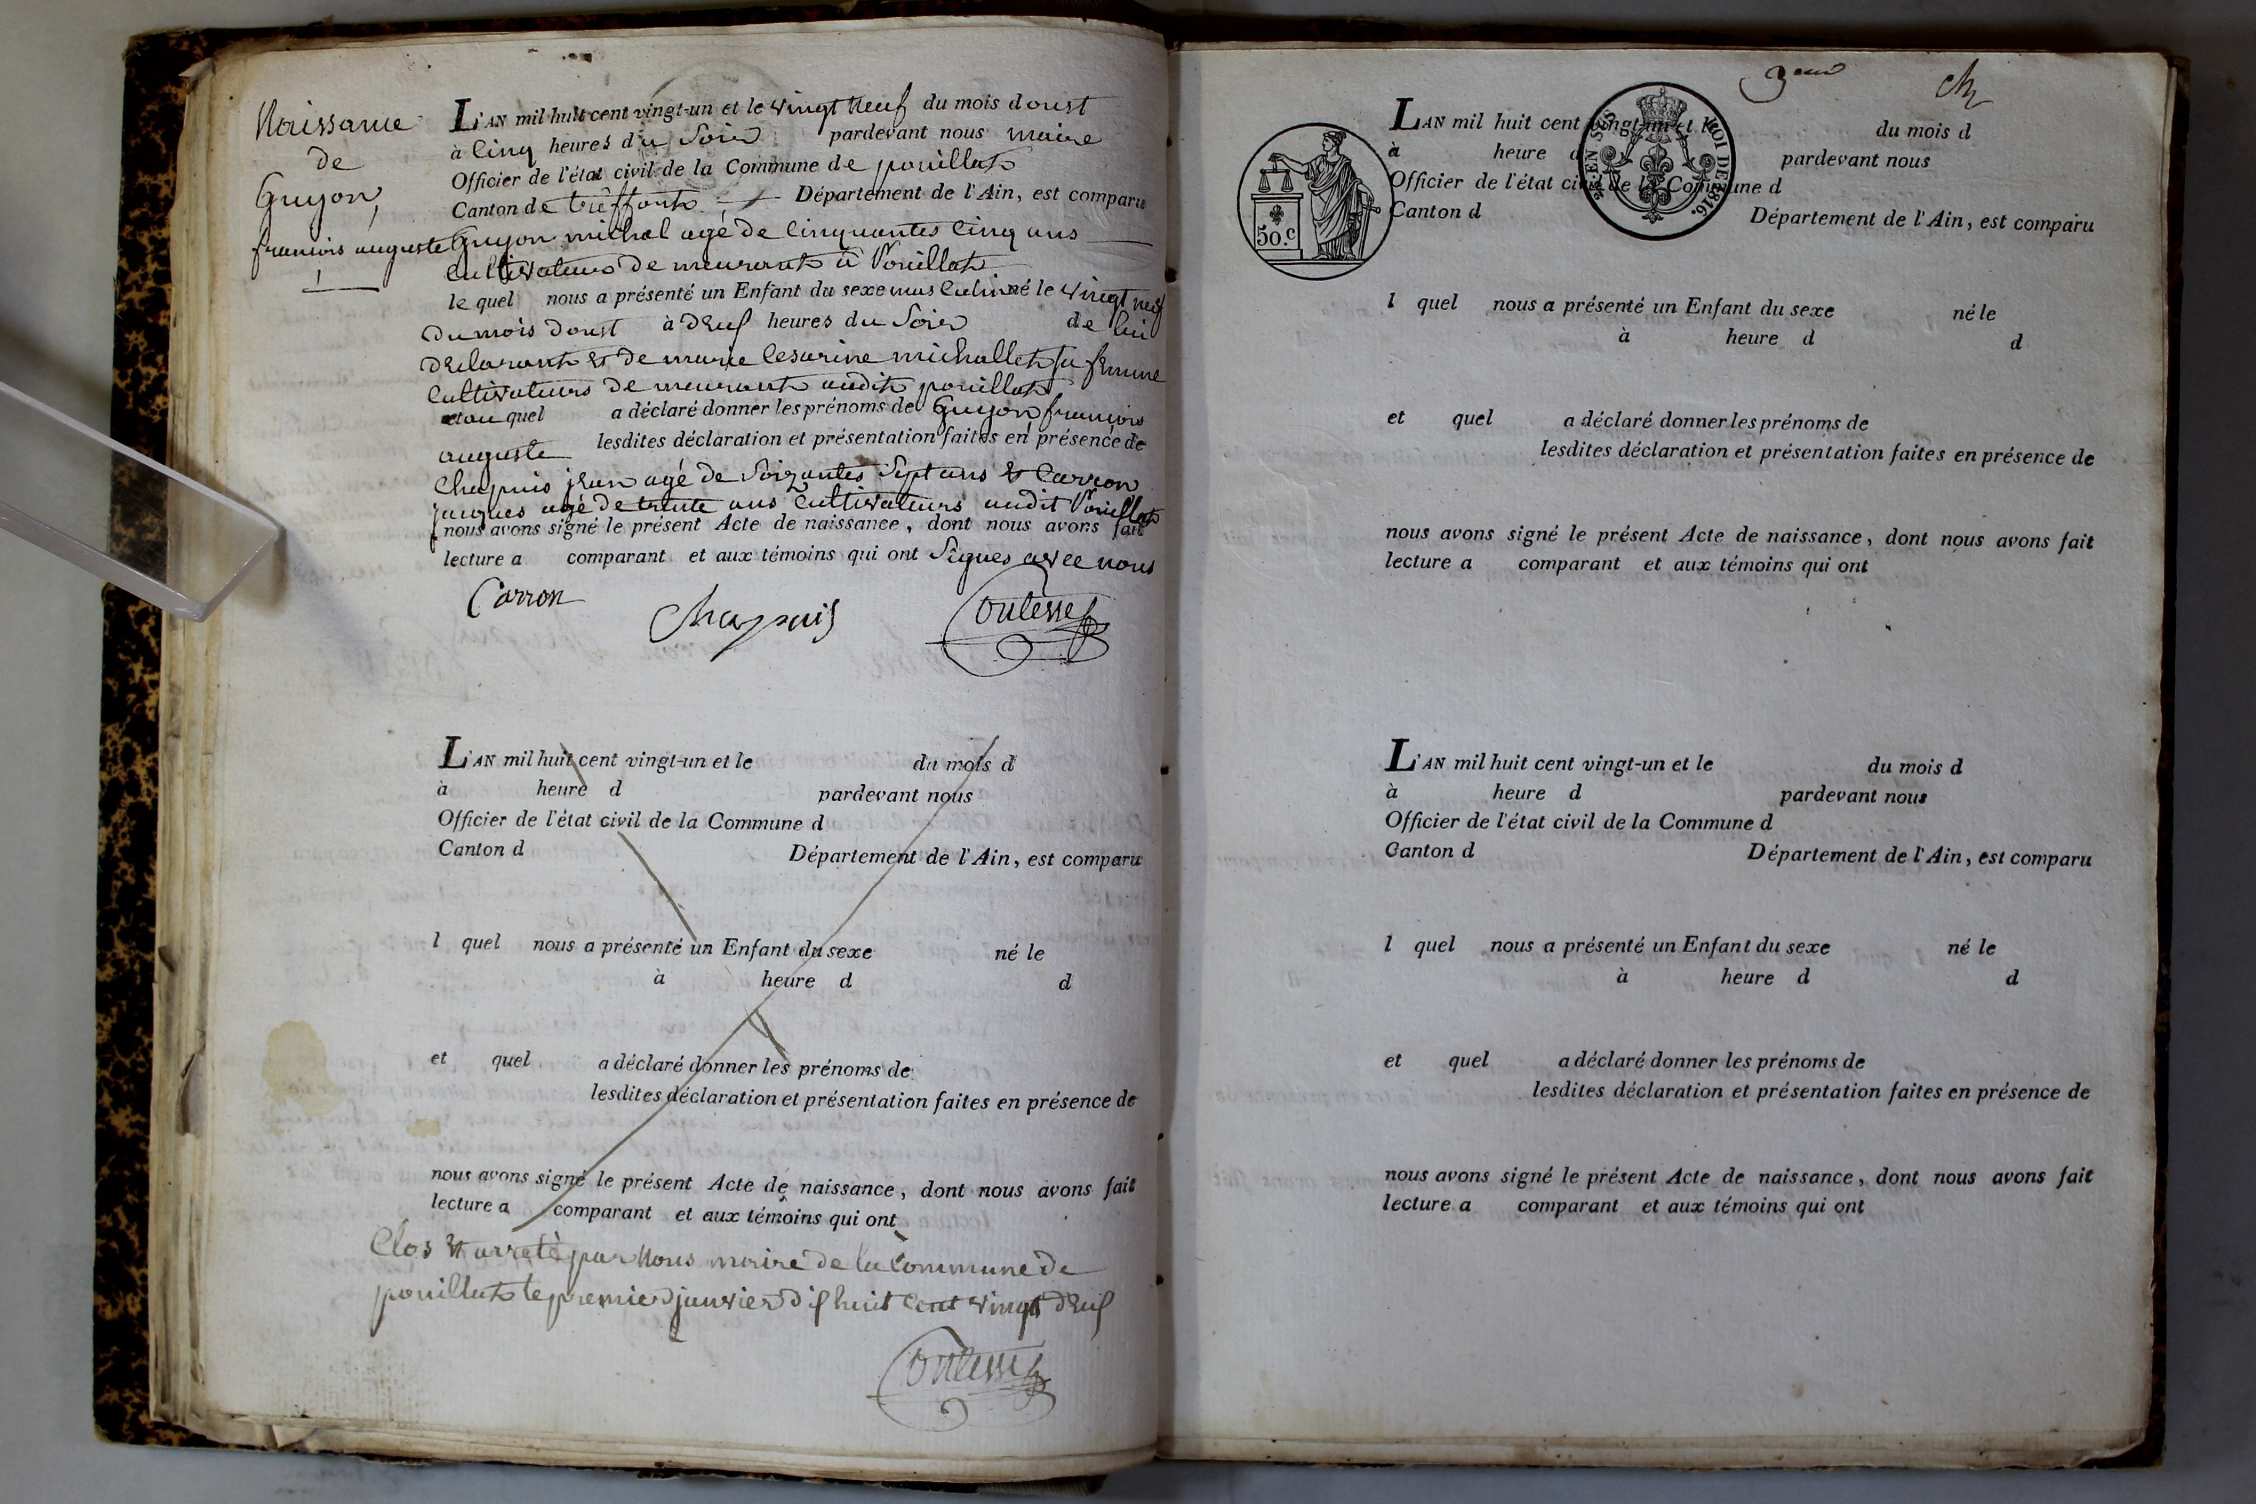 Naissance
de
Guyon,
francois auguste
1
L'AN mil huit cent vingt-un et le vingt neuf du mois doust
à Cinq heures du Soir pardevant nous maire
Officier de l'état civil de la Commune de pouillat
Canton de treffort Département de l'Ain, est comparu
Guyon michel agé de Cinquantes Cinq ans
Cultivateur de meurant à Pouillat
le quel nous a présenté un Enfant du sexe masculin né le vingt neuf
du mois doust à deuf heures du Soir de lui
declarant et de marie Cesarine michallet sa femme
Cultivateurs de meurant audit pouillat
et au quel a déclaré donner les prénoms de Guyon francois
auguste lesdites déclaration et présentation faites en présence de
Chapuis jean agé de Soizantes Sept ans et Carron
jacques agé de trente ans Cultivateurs audit Pouillat
nous avons signé le présent Acte de naissance, dont nous avons fait
lecture a comparant et aux témoins qui ont Signes avec nous
Carron Chapuis
L'AN mil huit cent vingt-un et le du mois d
à heure d pardevant nous
Officier de l'état civil de la Commune d
Canton d Département de l'Ain, est comparu
l quel nous a présenté un Enfant du sexe né le
à heure d d
et quel a déclaré donner les prénoms de
lesdites déclaration et présentation faites en présence de
nous avons signé le présent Acte de naissance, dont nous avons fait
lecture a comparant et aux témoins qui ont
Clos et arreté par Nous maire de la Commune de
pouillat le premier janvier dis huit Cent vingt deuf
3eme
50.c
ROI DE 1816.
L'AN mil huit cent vingt-un et le du mois d
à heure d pardevant nous
Officier de l'état civil de la Commune d
Canton d Département de l'Ain, est comparu
l quel nous a présenté un Enfant du sexe né le
à heure d d
et quel a déclaré donner les prénoms de
lesdites déclaration et présentation faites en présence de
nous avons signé le présent Acte de naissance, dont nous avons fait
lecture a comparant et aux témoins qui ont
L'AN mil huit cent vingt-un et le du mois d
à heure d pardevant nous
Officier de l'état civil de la Commune d
Canton d Département de l'Ain, est comparu
l quel nous a présenté un Enfant du sexe né le
à heure d d
et quel a déclaré donner les prénoms de
lesdites déclaration et présentation faites en présence de
nous avons signé le présent Acte de naissance, dont nous avons fait
lecture a comparant et aux témoins qui ont